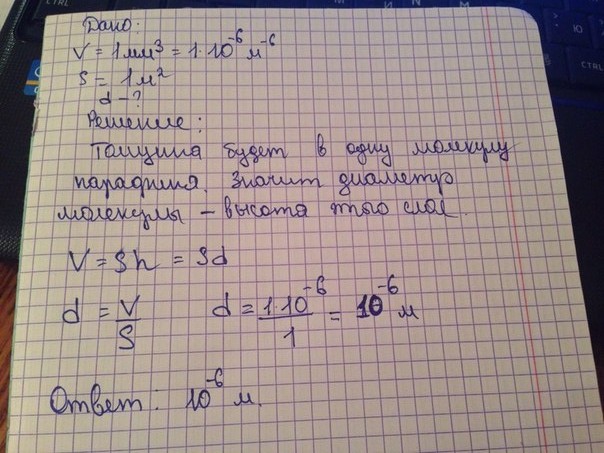 Дано:
V = 1 мм³ = 1·10⁻⁶ м⁻⁶
S = 1 м²
d - ?
Решение:
Толщина будет в одну молекулу
парафина. Значит диаметр
молекулы – высота того слоя.
V = Sh = Sd
d = V/S d = 1·10⁻⁶/1 = 10⁻⁶ м
Ответ: 10⁻⁶ м.
CTRL
CTRL